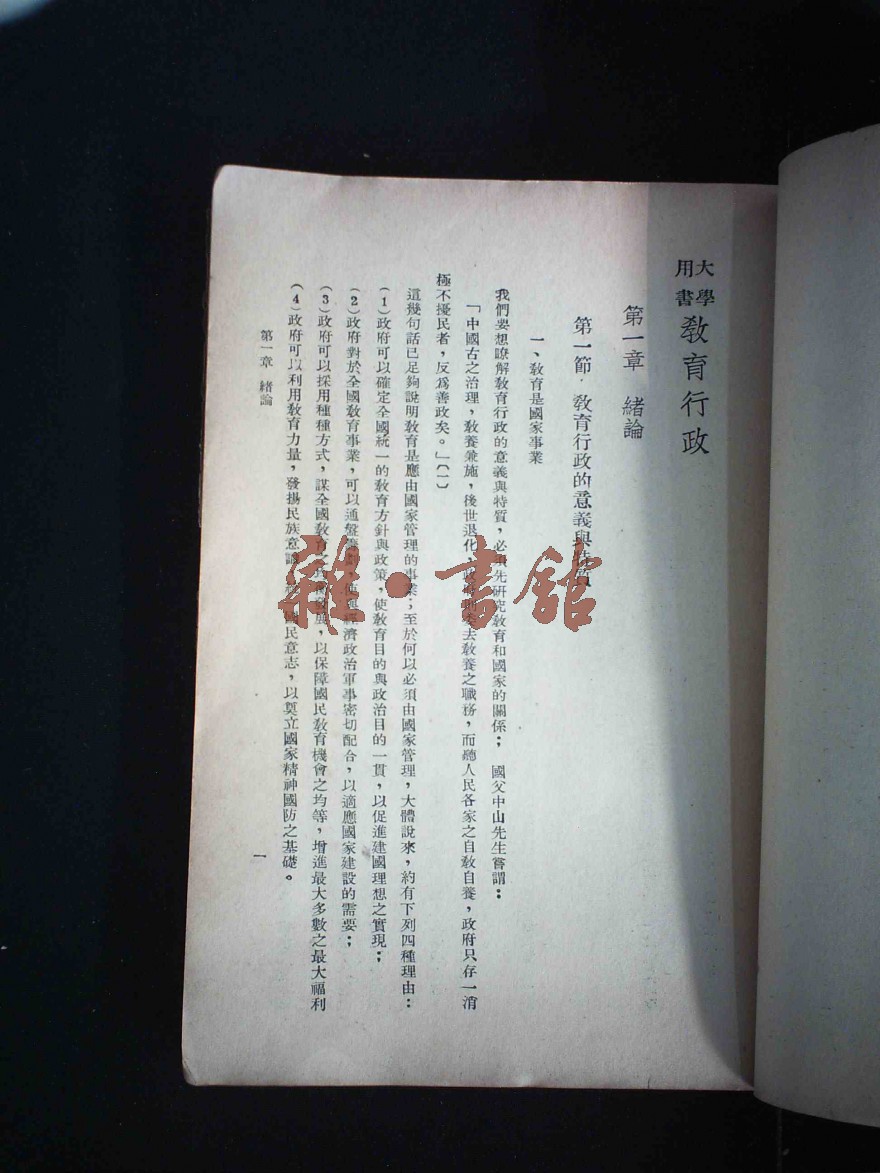 大學用書 教育行政
第一章 緒論
第一節 教育行政的意義與特質
一、教育是國家事業
我們要想瞭解教育行政的意義與特質，必須先研究教育和國家的關係； 國父中山先生嘗謂：
「中國古之治理，教養兼施，後世退化，政府則委去教養之職務，而聽人民各家之自教自養，政府只存一消
極不擾民者，反爲善政矣。」（一）
這幾句話已足夠說明教育是應由國家管理的事業；至於何以必須由國家管理，大體說來，約有下列四種理由：
（1）政府可以確定全國統一的教育方針與政策，使教育目的與政治目的一貫，以促進建國理想之實現；
（2）政府對於全國教育事業，可以通盤籌劃，使與經濟政治軍事密切配合，以適應國家建設的需要；
（3）政府可以採用種種方式，謀全國教育之發展，以保障國民教育機會之均等，增進最大多數之最大福利
（4）政府可以利用教育力量，發揚民族意識，國民意志，以奠立國家精神國防之基礎。
第一章 緒論
一
雜·書館